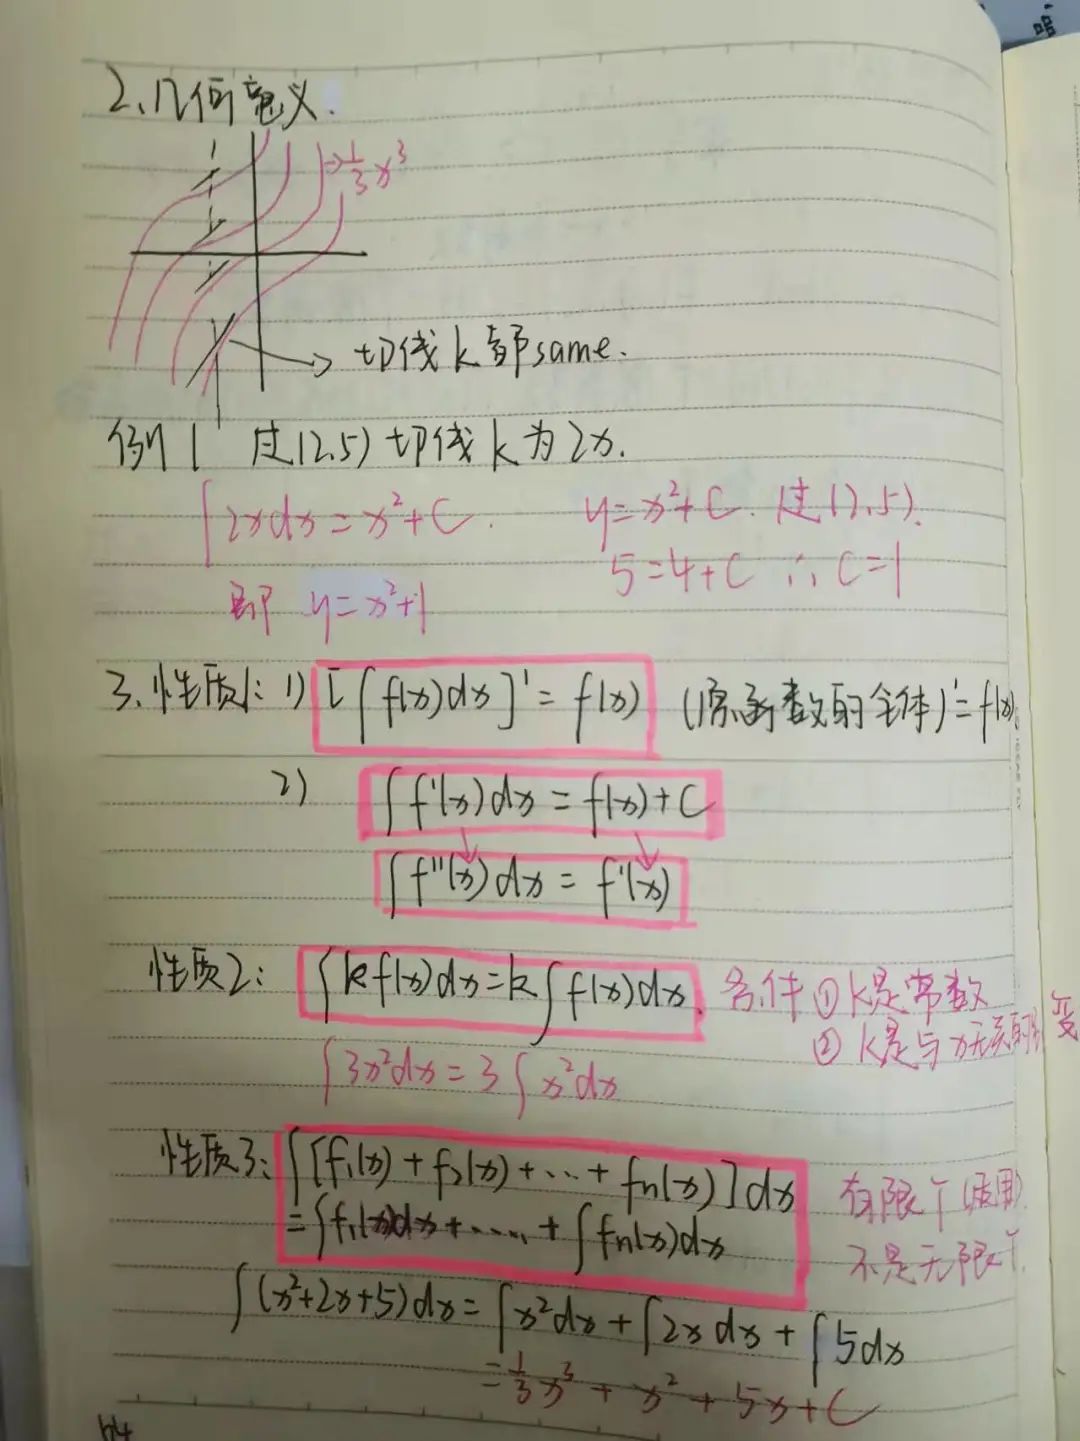 2、几何意义.
→ 1/3 x³
→ 切线k都same.
例1 过(2,5)切线k为2x.
∫2xdx=x²+C. y=x²+C. 过(2,5).
5=4+C ∴C=1
即 y=x²+1
3.性质1: 1) [∫f(x)dx]'=f(x) (原函数的全体)'=f(x)
2) ∫f'(x)dx=f(x)+C
∫f''(x)dx=f'(x)
性质2: ∫kf(x)dx=k∫f(x)dx. 条件①k是常数
②k是与x无关的 变
∫3x²dx=3∫x²dx
性质3: ∫[f₁(x)+f₂(x)+…+fn(x)]dx 有限个(适用)
=∫f₁(x)dx+……+∫fn(x)dx 不是无限个.
∫(x²+2x+5)dx=∫x²dx+∫2xdx+∫5dx
=1/3 x³+x²+5x+C